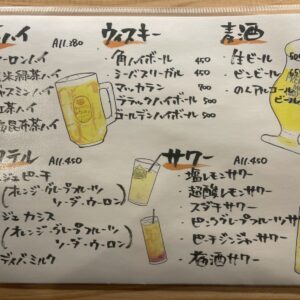 ハイ All.380
ウーロンハイ
玄米緑茶ハイ
ジャスミンハイ
紅茶ハイ
昆布茶ハイ
ウィスキー
・角ハイボール 450
・シーバスリーガル 450
・マッカラン 700
・ブラックハイボール 500
・ゴールデンハイボール 500
麦酒
・生ビール
・ビンビール
・のんアルコールビール
カクテル All.450
ピーチ
(オレンジ・グレープフルーツ
ソーダ・ウーロン)
カシス
(オレンジ・グレープフルーツ
ソーダ・ウーロン)
ミルク
サワー All.450
・塩レモンサワー
・超酸レモンサワー
・スダチサワー
・ピンクグレプフルーツサワー
・ピーチジンジャーサワー
・梅酒サワー